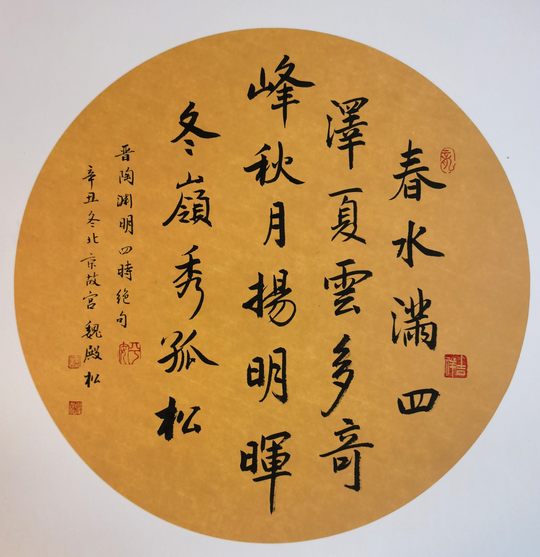 春水滿四
澤夏雲多奇
峰秋月揚明暉
冬嶺秀孤松
晋陶渊明四時绝句
辛丑冬北京故宫魏殿松
吉祥